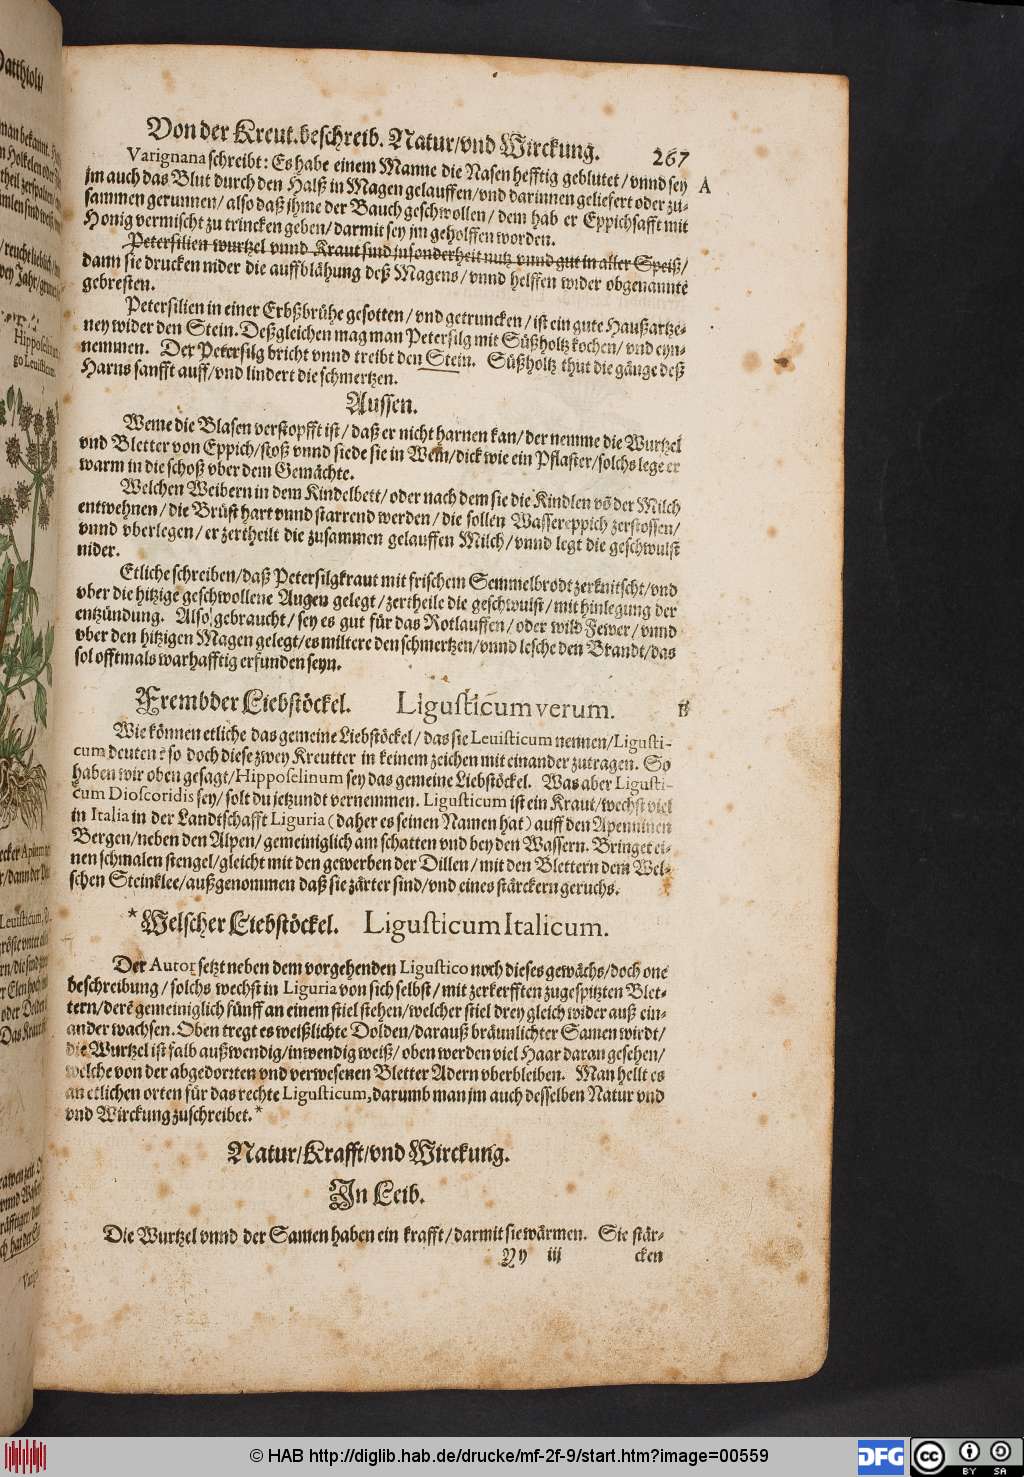 Von der Kreut. beschreib. Natur/vnd Wirckung. 267
Varignana schreibt: Es habe einem Manne die Nasen hefftig geblutet/vnnd sey A
jm auch das Blut durch den Halß in Magen gelauffen/vnd darinnen geliefert oder zu-
sammen gerunnen/also daß jhme der Bauch geschwollen/dem hab er Eppichsafft mit
Honig vermischt zu trincken geben/darmit sey jm geholffen worden.
Petersilien wurtzel vnnd Kraut sind insonderheit nutz vnnd gut in aller Speiß/
dann sie drucken nider die auffblähung deß Magens/vnnd helffen wider obgenannte
gebresten.
Petersilien in einer Erbßbrühe gesotten/vnd getruncken/ist ein gute Haußartze-
ney wider den Stein. Deßgleichen mag man Petersilg mit Süßholtz kochen/vnd eyn-
nemmen. Der Petersilg bricht vnnd treibt den Stein. Süßholtz thut die gänge deß
Harns sanfft auff/vnd lindert die schmertzen.
Aussen.
Weme die Blasen verstopfft ist/daß er nicht harnen kan/der nemme die Wurtzel
vnd Bletter von Eppich/stoß vnnd siede sie in Wein/dick wie ein Pflaster/solchs lege er
warm in die schoß vber dem Gemächte.
Welchen Weibern in dem Kindelbett/oder nach dem sie die Kindlen võ der Milch
entwehnen/die Brüst hart vnnd starrend werden/die sollen Wassereppich zerstossen/
vnnd vberlegen/er zertheilt die zusammen gelauffen Milch/vnnd legt die geschwulst
nider.
Etliche schreiben/daß Petersilgkraut mit frischem Semmelbrodt zerknitscht/vnd
vber die hitzige geschwollene Augen gelegt/zertheile die geschwulst/mit hinlegung der
entzündung. Also gebraucht/sey es gut für das Rotlauffen/oder wild Fewer/vnnd
vber den hitzigen Magen gelegt/es miltere den schmertzen/vnnd lesche den Brandt/das
sol offtmals warhafftig erfunden seyn.
Frembder Liebstöckel. Ligusticum verum. B
Wie können etliche das gemeine Liebstöckel/das sie Leuisticum nennen/Ligusti-
cum deuten? so doch diese zwey Kreutter in keinem zeichen mit einander zutragen. So
haben wir oben gesagt/Hipposelinum sey das gemeine Liebstöckel. Was aber Ligusti-
cum Dioscoridis sey/solt du jetzundt vernemmen. Ligusticum ist ein Kraut/wechst viel
in Italia in der Landtschafft Liguria (daher es seinen Namen hat) auff den Apenninen
Bergen/neben den Alpen/gemeiniglich am schatten vnd bey den Wassern. Bringet ei-
nen schmalen stengel/gleicht mit den gewerben der Dillen/mit den Blettern dem Wel-
schen Steinklee/außgenommen daß sie zärter sind/vnd eines stärckern geruchs.
* Welscher Liebstöckel. Ligusticum Italicum.
Der Autor setzt neben dem vorgehenden Ligustico noch dieses gewächs/doch one
beschreibung/solchs wechst in Liguria von sich selbst/mit zerkerfften zugespitzten Blet-
tern/derē gemeiniglich fünff an einem stiel stehen/welcher stiel drey gleich wider auß ein-
ander wachsen. Oben tregt es weißlichte Dolden/darauß bräunlichter Samen wirdt/
die Wurtzel ist falb außwendig/inwendig weiß/oben werden viel Haar daran gesehen/
welche von der abgedorrten vnd verwesenen Bletter Adern vberbleiben. Man hellt es
an etlichen orten für das rechte Ligusticum, darumb man jm auch desselben Natur vnd
vnd Wirckung zuschreibet.*
Natur/Krafft/vnd Wirckung.
In Leib.
Die Wurtzel vnnd der Samen haben ein krafft/darmit sie wärmen. Sie stär-
Yy iii cken
© HAB http://diglib.hab.de/drucke/mf-2f-9/start.htm?image=00559
DFG
cc BY SA